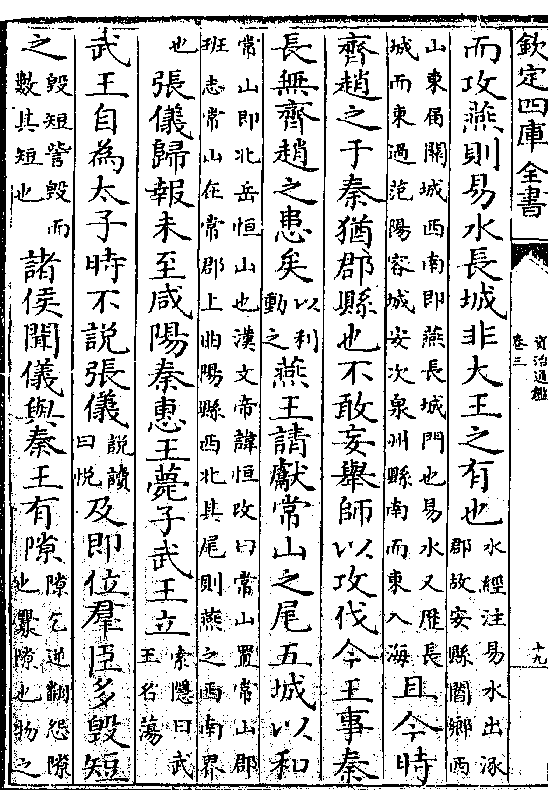 欽定四庫全書
資治通鑑
卷三
十九
而攻燕則易水長城非大王之有也水經注易水出涿
郡故安縣閻鄉西
山東屆關城西南即燕長城門也易水又歷長
城而東過范陽容城安次泉州縣南而東入海且今時
齊趙之于秦猶郡縣也不敢妄舉師以攻伐今王事秦
長無齊趙之患矣以利
動之燕王請獻常山之尾五城以和
常山即北岳恒山也漢文帝諱恒改曰常山置常山郡
班志常山在常郡上曲陽縣西北其尾則燕之西南界
也張儀歸報未至咸陽秦惠王薨子武王立索隱曰武
王名蕩
武王自為太子時不說張儀說讀
曰悅及即位羣臣多毀短
之毀短訾毀而
數其短也諸侯聞儀與秦王有隙隙乞逆翻怨隙
也釁隙也物之